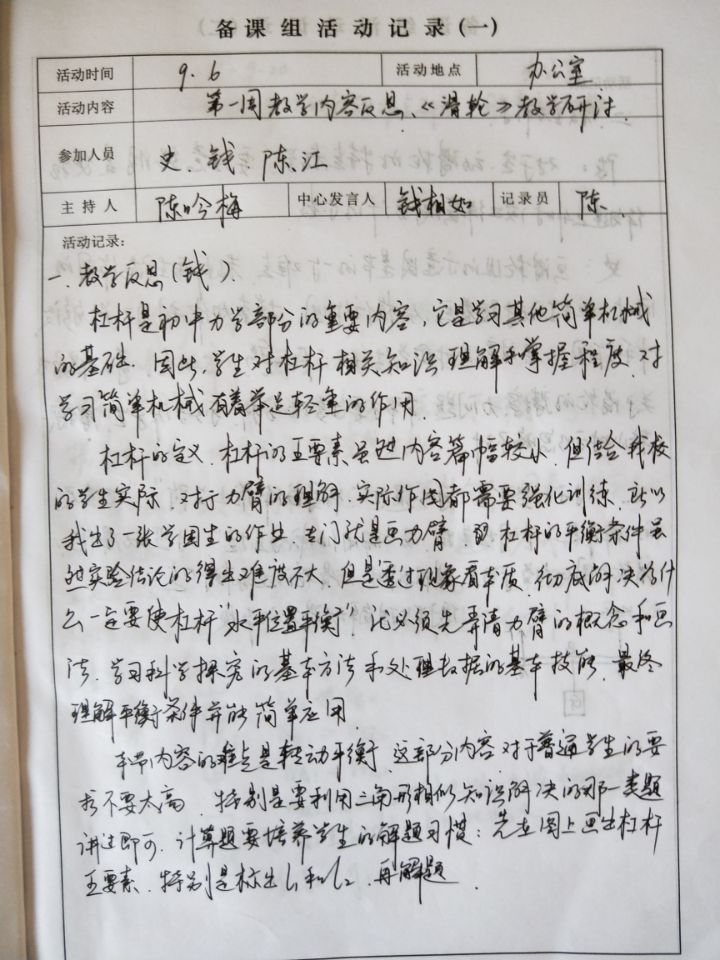 备课组活动记录(一)
活动时间 9.6 活动地点 办公室
活动内容 第一周教学内容反思、《滑轮》教学研讨
参加人员 史、钱 陈、江
主持人 陈吟梅 中心发言人 钱相如 记录员 陈
活动记录:
一、教学反思(钱)
杠杆是初中力学部分的重要内容,它是学习其他简单机械
的基础.因此,学生对杠杆相关知识理解和掌握程度,对
学习简单机械有着举足轻重的作用.
杠杆的定义、杠杆的五要素虽然内容篇幅较小,但结合我校
的学生实际,对于力臂的理解、实际作图都需要强化训练,所以
我出了一张学生的作业,专门就是画力臂.杠杆的平衡条件虽
然实验结论的得出难度不大,但是透过现象看本质,彻底解决为什
么一定要使杠杆“水平位置平衡”,必须先弄清力臂的概念和画
法,学习科学探究的基本方法和处理数据的基本技能,最终
理解平衡条件并能简单应用.
本节内容的难点是转动平衡,这部分内容对于普通学生的要
求不要太高,特别是要利用三角形相似知识解决的那一类题
讲过即可.计算题要培养学生的解题习惯:先在图上画出杠杆
五要素,特别是标出l₁和l₂,再解题.